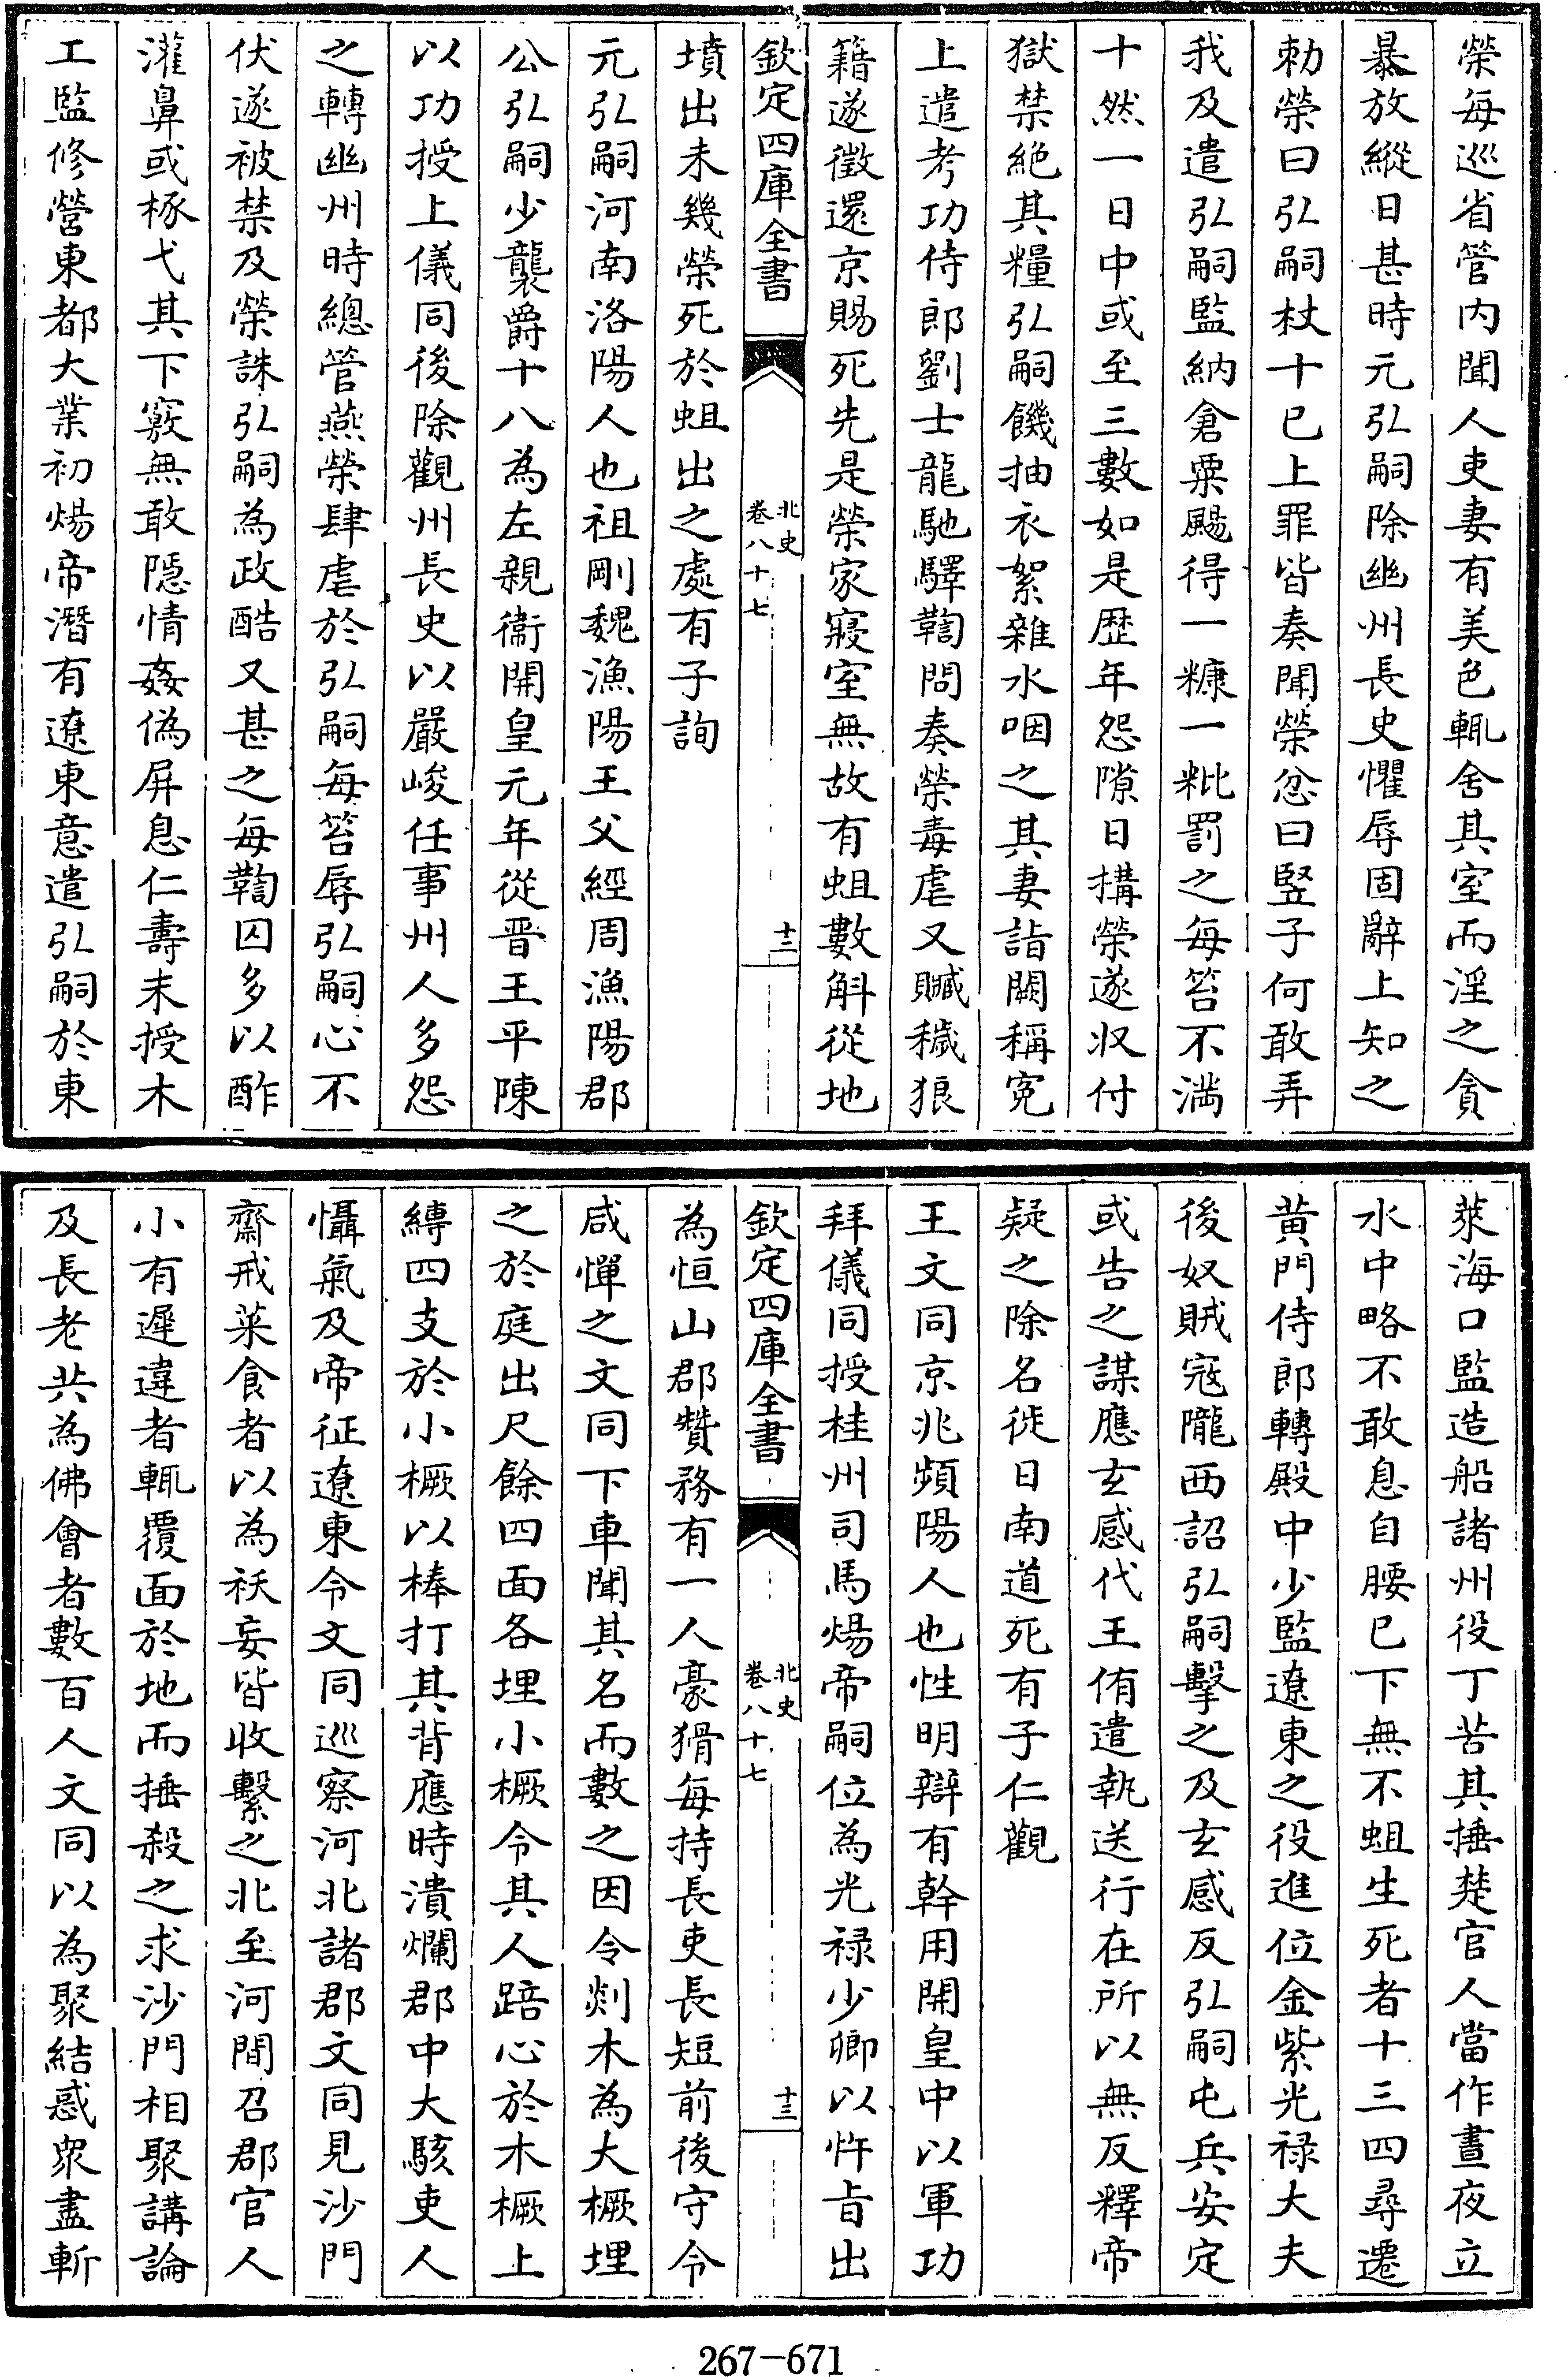 榮每巡省管内聞人吏妻有美色輒舍其室而淫之貪
暴放縱日甚時元弘嗣除幽州長史懼辱固辭上知之
勅榮曰弘嗣杖十已上罪皆奏聞榮忿曰豎子何敢弄
我及遣弘嗣監納倉粟颺得一糠一粃罰之每笞不满
十然一日中或至三數如是歴年怨隙日搆榮遂收付
獄禁絶其糧弘嗣饑抽衣絮雜水咽之其妻詣闕稱寃
上遣考功侍郎劉士龍馳驛鞫問奏榮毒虐又贓穢狼
籍遂徵還京賜死先是榮家寢室無故有蛆數斛從地
欽定四庫全書 北史 卷八十七 十二
墳出未幾榮死於蛆出之處有子詢
元弘嗣河南洛陽人也祖剛魏漁陽王父經周漁陽郡
公弘嗣少襲爵十八為左親衞開皇元年從晋王平陳
以功授上儀同後除觀州長史以嚴峻任事州人多怨
之轉幽州時總管燕榮肆虐於弘嗣每笞辱弘嗣心不
伏遂被禁及榮誅弘嗣為政酷又甚之每鞫囚多以酢
灌鼻或椓弋其下竅無敢隠情姦偽屏息仁壽末授木
工監修營東都大業初煬帝潛有遼東意遣弘嗣於東
萊海口監造船諸州役丁苦其捶楚官人當作晝夜立
水中略不敢息自腰已下無不蛆生死者十三四尋遷
黄門侍郎轉殿中少監遼東之役進位金紫光禄大夫
後奴賊寇隴西詔弘嗣擊之及玄感反弘嗣屯兵安定
或告之謀應玄感代王侑遣執送行在所以無反釋帝
疑之除名徙日南道死有子仁觀
王文同京兆頻陽人也性明辯有幹用開皇中以軍功
拜儀同授桂州司馬煬帝嗣位為光禄少卿以忤旨出
欽定四庫全書 北史 卷八十七 十三
為恒山郡贊務有一人豪猾每持長吏長短前後守令
咸憚之文同下車聞其名而數之因令剡木為大橛埋
之於庭出尺餘四面各埋小橛令其人踣心於木橛上
縛四支於小橛以棒打其背應時潰爛郡中大駭吏人
懾氣及帝征遼東令文同巡察河北諸郡文同見沙門
齋戒菜食者以為祅妄皆收繫之北至河間召郡官人
小有遲違者輒覆面於地而捶殺之求沙門相聚講論
及長老共為佛會者數百人文同以為聚結惑衆盡斬
267-671